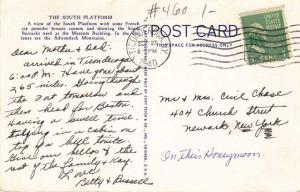 THE SOUTH PLATFORM
A view of the South Platform with some French
six pounder bronze cannon and showing the South
Barracks used as the Museum Building. In the background
are the Adirondack Mountains.
#460 1-
POST CARD
Dear Mother & Dad:
arrived in Ticonderoga
6:00 P.M. Have gone about
265 miles. Going through
the Fort tomorrow and
then head for Boston.
Having a swell time.
Staying in a cabin on
top of a hill tonite.
Give our hellos & the
rest of the Family & Kay.
Love
Betty & Russell
Mr & Mrs. Cecil Chase
404 Church Street
Newark, New York
On Their Honeymoon.